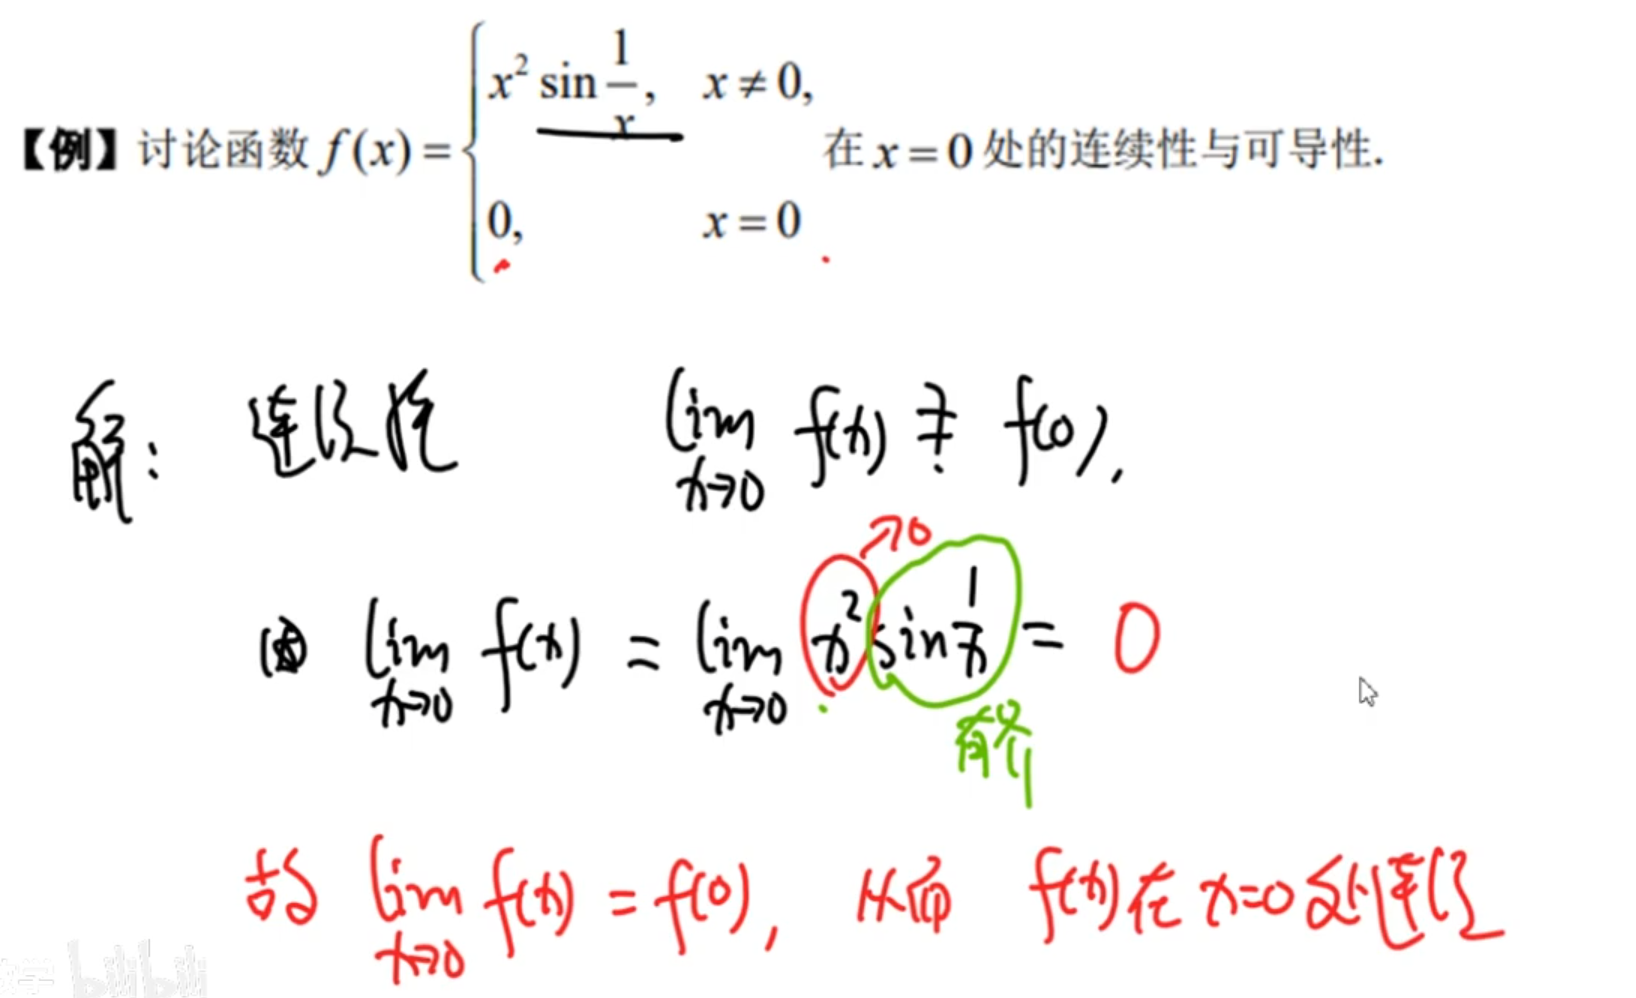 【例】讨论函数 f(x) = { x² sin 1/x, x ≠ 0, 0, x = 0 在 x = 0 处的连续性与可导性.
解: 连续性 lim x→0 f(x) ≟ f(0),
因 lim x→0 f(x) = lim x→0 x² sin 1/x = 0
→0
有界
故 lim x→0 f(x) = f(0), 从而 f(x) 在 x=0 处连续
学 bilibili